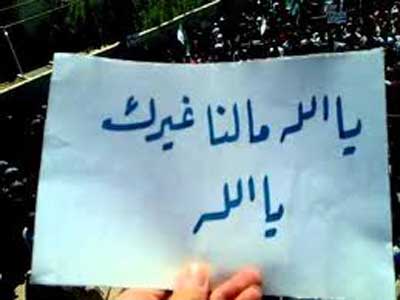 يا الله مالنا غيرك
يا الله